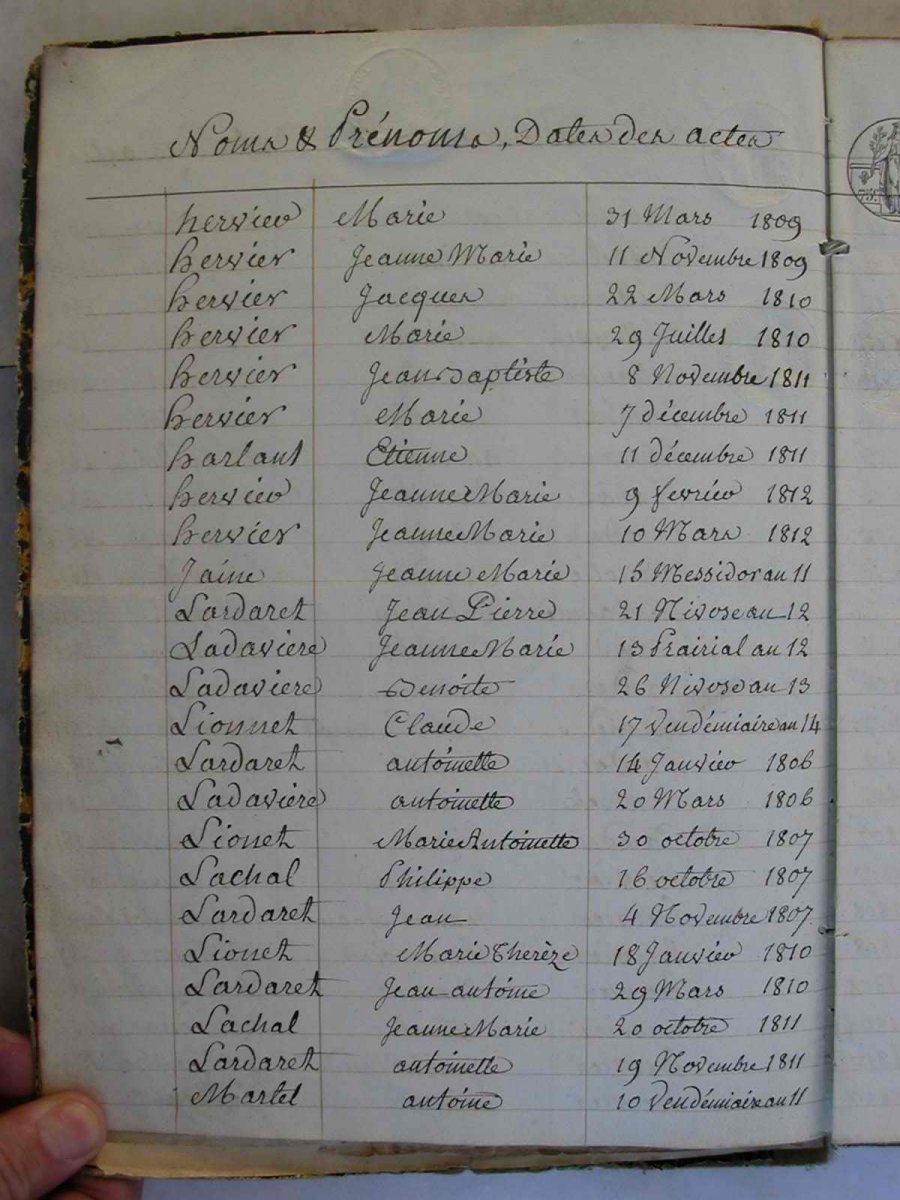 Noms & Prénoms, Dates des actes
hervier Marie 31 Mars 1809
hervier Jeanne Marie 11 Novembre 1809
hervier Jacques 22 Mars 1810
hervier Marie 29 Juilles 1810
hervier Jean Baptiste 8 Novembre 1811
hervier Marie 7 décembre 1811
harlant Etienne 11 décembre 1811
hervier Jeanne Marie 9 fevrier 1812
hervier Jeanne Marie 10 Mars 1812
Jaine Jeanne Marie 15 Messidor an 11
Lardaret Jean Pierre 21 Nivose an 12
Ladaviere Jeanne Marie 13 Prairial an 12
Ladaviere Benoite 26 Nivose an 13
Lionnet Claude 17 Vendémiaire an 14
Lardaret antoinette 14 Janvier 1806
Ladavière antoinette 20 Mars 1806
Lionet Marie Antoinette 30 octobre 1807
Lachal Philippe 16 octobre 1807
Lardaret Jean 4 Novembre 1807
Lionet Marie Therèze 18 Janvier 1810
Lardaret Jean antoine 29 Mars 1810
Lachal Jeanne Marie 20 octobre 1811
Lardaret antoinette 19 Novembre 1811
Martel antoine 10 Vendémiaire an 11